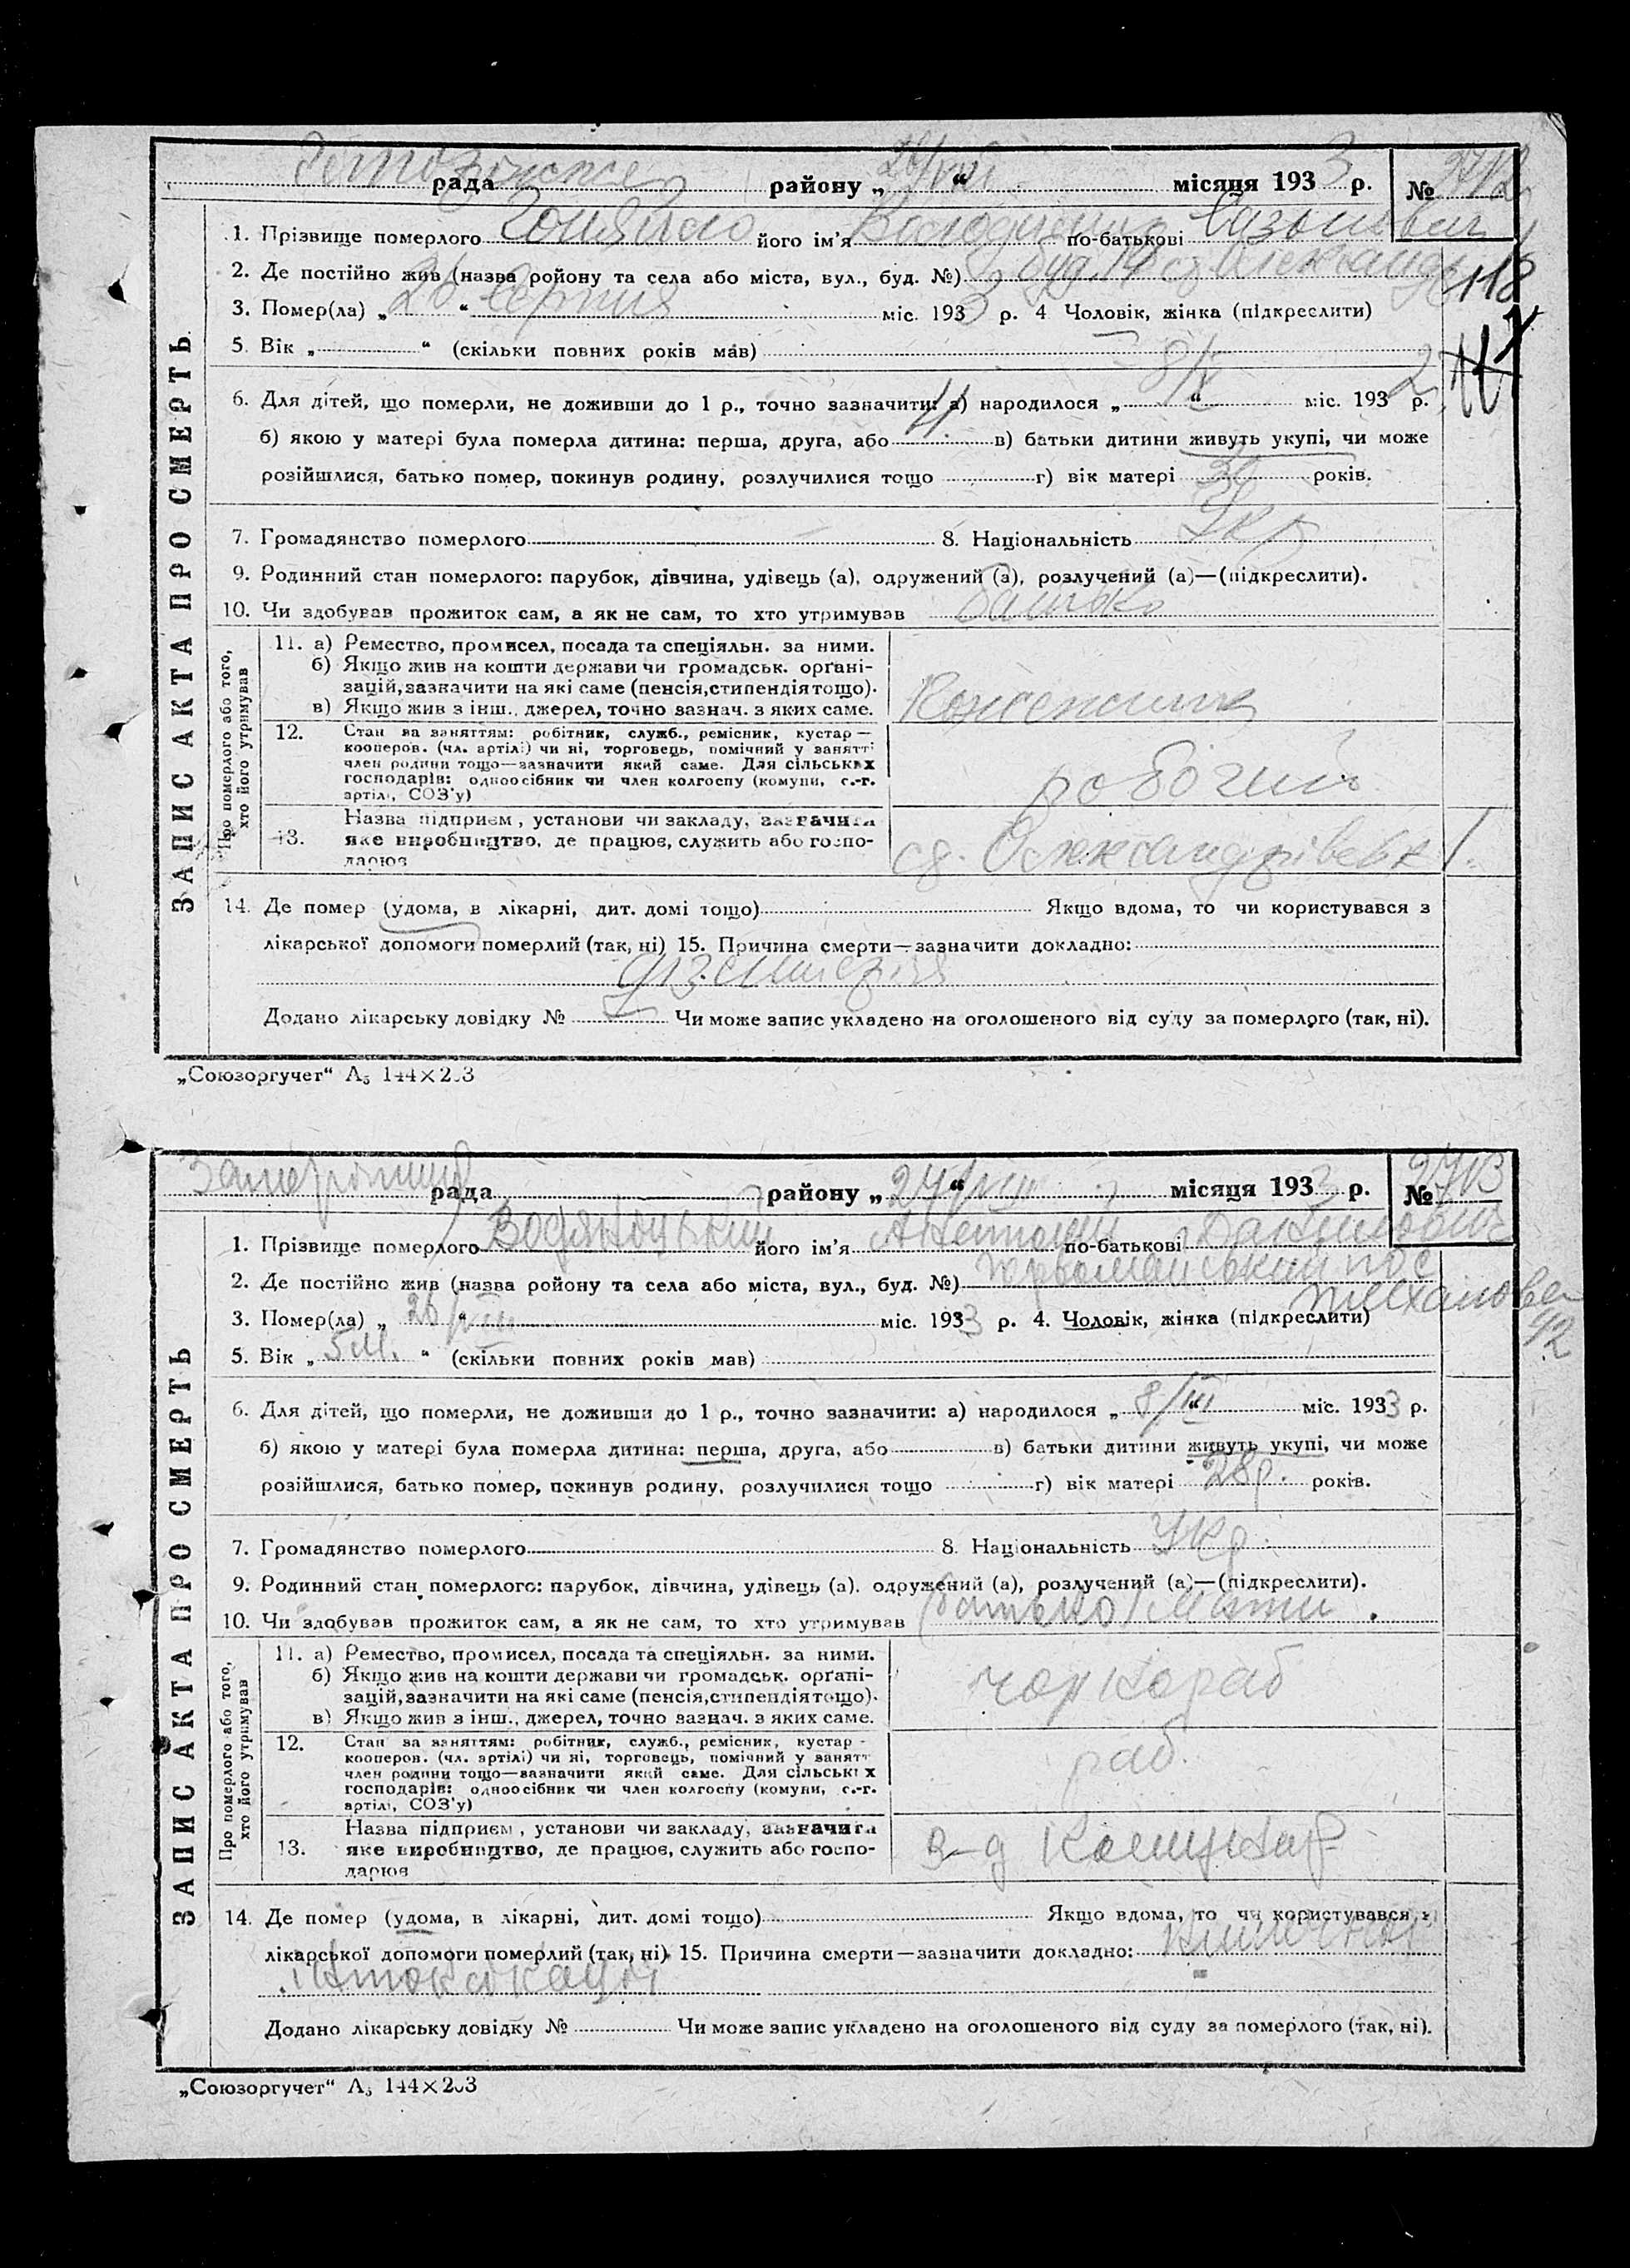 рада району „ “ місяця 1933 р. №
1. Прізвище померлого його ім'я Володимир по-батькові
2. Де постійно жив (назва ройону та села або міста, вул., буд. №) буд. 14
118
3. Помер(ла) „ 26 “ Серпня міс. 1933 р. 4 Чоловік, жінка (підкреслити)
5. Вік „ “ (скільки повних років мав)
6. Для дітей, що померли, не доживши до 1 р., точно зазначити: а) народилося „ 8/X “ міс. 1932 р.
б) якою у матері була померла дитина: перша, друга, або 4 в) батьки дитини живуть укупі, чи може
розійшлися, батько помер, покинув родину, розлучилися тощо г) вік матері років.
7. Громадянство померлого 8. Національність Укр
9. Родинний стан померлого: парубок, дівчина, удівець (а), одружений (а), розлучений (а)—(підкреслити).
10. Чи здобував прожиток сам, а як не сам, то хто утримував батько
ЗАПИС АКТА ПРО СМЕРТЬ
Про померлого або того, хто його утримував
11. а) Ремество, промисел, посада та спеціяльн. за ними.
б) Якщо жив на кошти держави чи громадськ. орґані-
зацій, зазначити на які саме (пенсія, стипендія тощо).
в) Якщо жив з інш., джерел, точно зазнач. з яких саме.
12. Стан за заняттям: робітник, служб., ремісник, кустар —
кооперов. (чл. артілі) чи ні, торговець, помічний у занятті
член родини тощо—зазначити який саме. Для сільських
господарів: одноосібник чи член колгоспу (комуни, с.-г.
артілі, СОЗ'у)
робочий
13. Назва підприєм, установи чи закладу, зазначити
яке виробництво, де працює, служить або госпо-
дарює
14. Де помер (удома, в лікарні, дит. домі тощо) Якщо вдома, то чи користувався з
лікарської допомоги померлий (так, ні) 15. Причина смерти—зазначити докладно:
дизентерія
Додано лікарську довідку № Чи може запис укладено на оголошеного від суду за померлого (так, ні).
„Союзоргучет“ А₅ 144×203
рада району „ 27/VIII “ місяця 1933 р. № 2713
1. Прізвище померлого його ім'я по-батькові
2. Де постійно жив (назва ройону та села або міста, вул., буд. №) Первомайський пос
92
3. Помер(ла) „ 26/VIII “ міс. 1933 р. 4. Чоловік, жінка (підкреслити)
5. Вік „ 5 м. “ (скільки повних років мав)
6. Для дітей, що померли, не доживши до 1 р., точно зазначити: а) народилося „ 8/III “ міс. 1933 р.
б) якою у матері була померла дитина: перша, друга, або в) батьки дитини живуть укупі, чи може
розійшлися, батько помер, покинув родину, розлучилися тощо г) вік матері 28 р. років.
7. Громадянство померлого 8. Національність Укр.
9. Родинний стан померлого: парубок, дівчина, удівець (а), одружений (а), розлучений (а)—(підкреслити).
10. Чи здобував прожиток сам, а як не сам, то хто утримував батько, мати.
ЗАПИС АКТА ПРО СМЕРТЬ
Про померлого або того, хто його утримував
11. а) Ремество, промисел, посада та спеціяльн. за ними.
б) Якщо жив на кошти держави чи громадськ. орґані-
зацій, зазначити на які саме (пенсія, стипендія тощо).
в) Якщо жив з інш., джерел, точно зазнач. з яких саме.
чорнораб
12. Стан за заняттям: робітник, служб., ремісник, кустар -
кооперов. (чл. артілі) чи ні, торговець, помічний у занятт
член родини тощо—зазначити який саме. Для сільських
господарів: одноосібник чи член колгоспу (комуни, с.-г.
артілі, СОЗ'у)
раб.
13. Назва підприєм, установи чи закладу, зазначити
яке виробництво, де працює, служить або госпо-
дарює
з-д Комунар
14. Де помер (удома, в лікарні, дит. домі тощо) Якщо вдома, то чи користувався з
лікарської допомоги померлий (так, ні) 15. Причина смерти—зазначити докладно:
Додано лікарську довідку № Чи може запис укладено на оголошеного від суду за померлого (так, ні).
„Союзоргучет“ А₅ 144×203